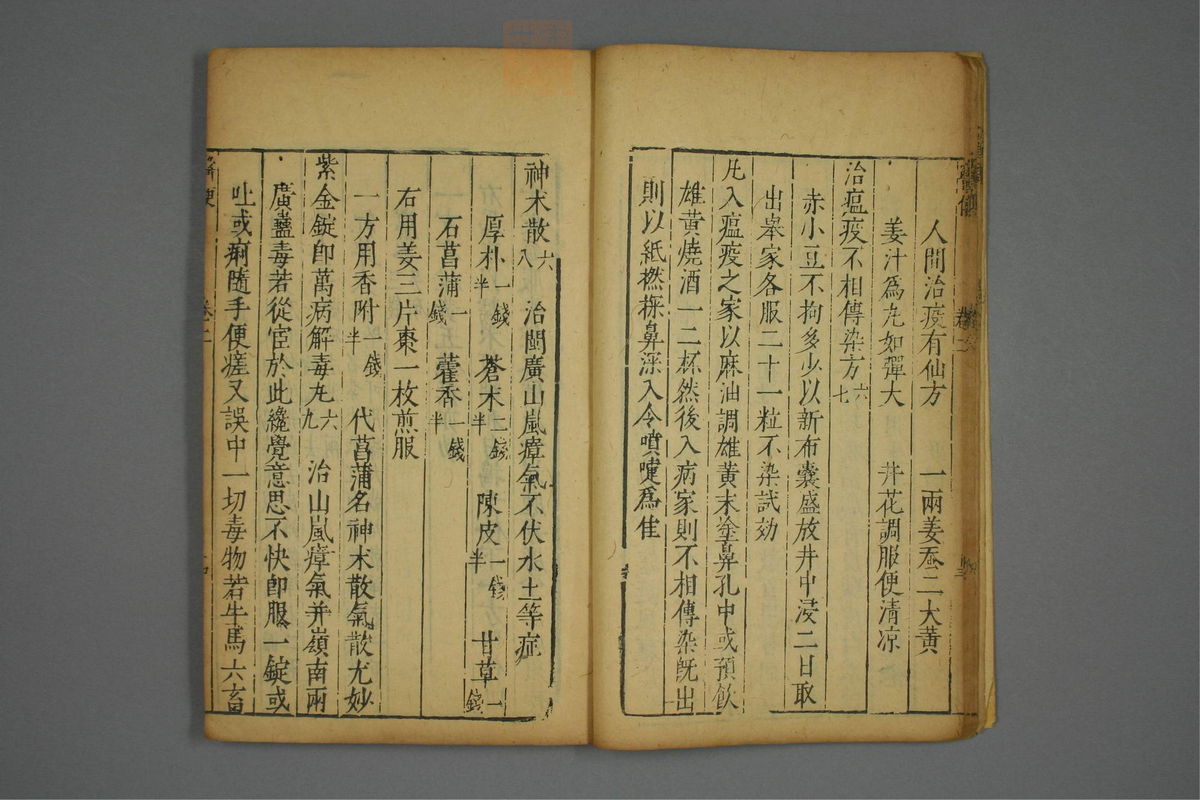 人間治疫有仙方　一兩姜蚕二大黄
姜汁爲丸如彈大　井花調服便清凉
治瘟疫不相傳染方六七
赤小豆不拘多少以新布囊盛放井中浸二日取
出舉家各服二十一粒不染試効
凢入瘟疫之家以麻油調雄黄末塗鼻孔中或預飲
雄黄燒酒一二杯然後入病家則不相傳染旣出
則以紙撚探鼻深入令噴嚔爲佳
神术散六八　治閩廣山嵐瘴氣不伏水土等症
厚朴一錢半　蒼术二錢半　陳皮一錢半　甘草一錢
石菖蒲一錢　藿香一錢半
右用姜三片棗一枚煎服
一方用香附一錢半　代菖蒲名神术散氣散尤妙
紫金錠卽萬病解毒丸六九　治山嵐瘴氣并嶺南兩
廣蠱毒若從宦於此纔覺意思不快卽服一錠或
吐或痢隨手便瘥又誤中一切毒物若牛馬六畜